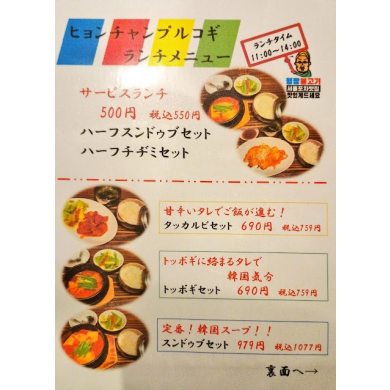 ヒョンチャンプルコギ
ランチメニュー
ランチタイム
11:00～14:00
서울포차맛집
맛있게드세요
サービスランチ
500円 税込550円
ハーフスンドゥブセット
ハーフチヂミセット
甘辛いタレでご飯が進む！
タッカルビセット 690円 税込759円
トッポギに絡まるタレで
韓国気分
トッポギセット 690円 税込759円
定番！韓国スープ！！
スンドゥブセット 979円 税込1077円
裏面へ→